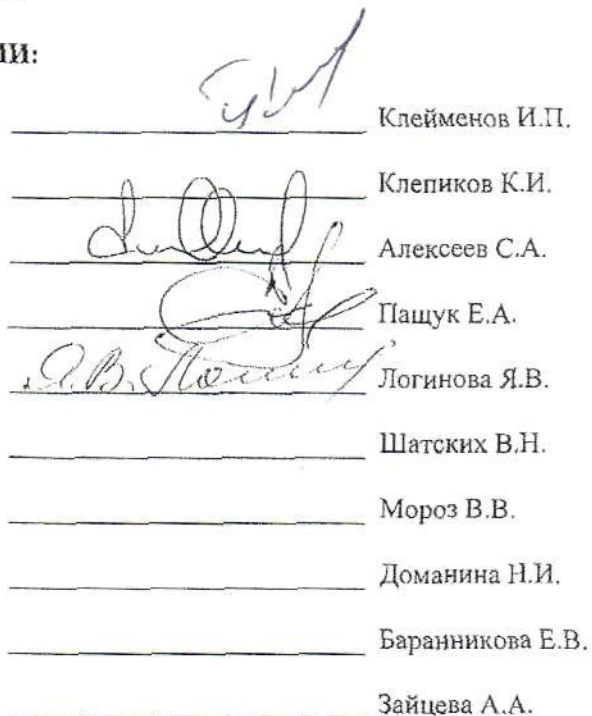 ИИ:
Клейменов И.П.
Клепиков К.И.
Алексеев С.А.
Пащук Е.А.
Логинова Я.В.
Шатских В.Н.
Мороз В.В.
Доманина Н.И.
Баранникова Е.В.
Зайцева А.А.